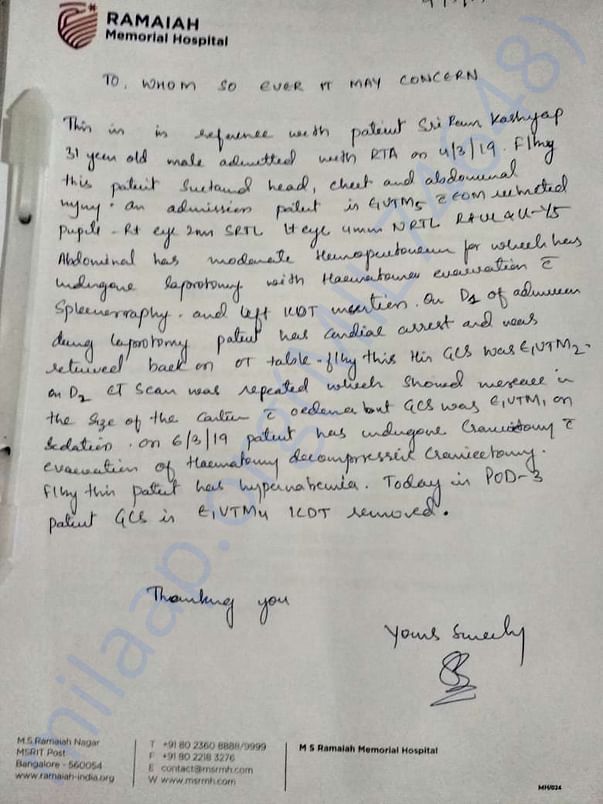 RAMAIAH
Memorial Hospital
TO, WHOM SO EVER IT MAY CONCERN
This in is reference with patient Sri Ram Kashyap
31 year old male admitted with RTA on 4/3/19. Flwg
this patient Sustained head, chest and abdominal
injury. on admission patient is E1VTM5 c̄ EOM restricted
pupil - Rt eye 2mm SRTL Lt eye 4mm NRTL
Abdominal has moderate Hemoperitoneum for which has
undergone laprotomy with Haematoma evacuation c̄
Spleenorraphy. and left ICDT insertion. On D1 of admission
during laprotomy patient has cardiac arrest and was
retrived back on OT table - flwg this His GCS was E1VTM2.
on D2 CT Scan was repeated which showed increase in
the size of the c̄ oedema but GCS was E1VTM1 on
Sedation. on 6/3/19 patient has undergone Craniotomy c̄
evacuation of Haematomy decompressive Craniectomy.
Flwg this patient has hypernatremia. Today is POD-3
patient GCS is E1VTM4 ICDT removed.
Thanking you
Yours Sincerely
M.S Ramaiah Nagar
MSRIT Post
Bangalore - 560054
www.ramaiah-india.org
T +91 80 2360 8888/9999
F +91 80 2218 3276
E contact@msrmh.com
W www.msrmh.com
M S Ramaiah Memorial Hospital
MH/024